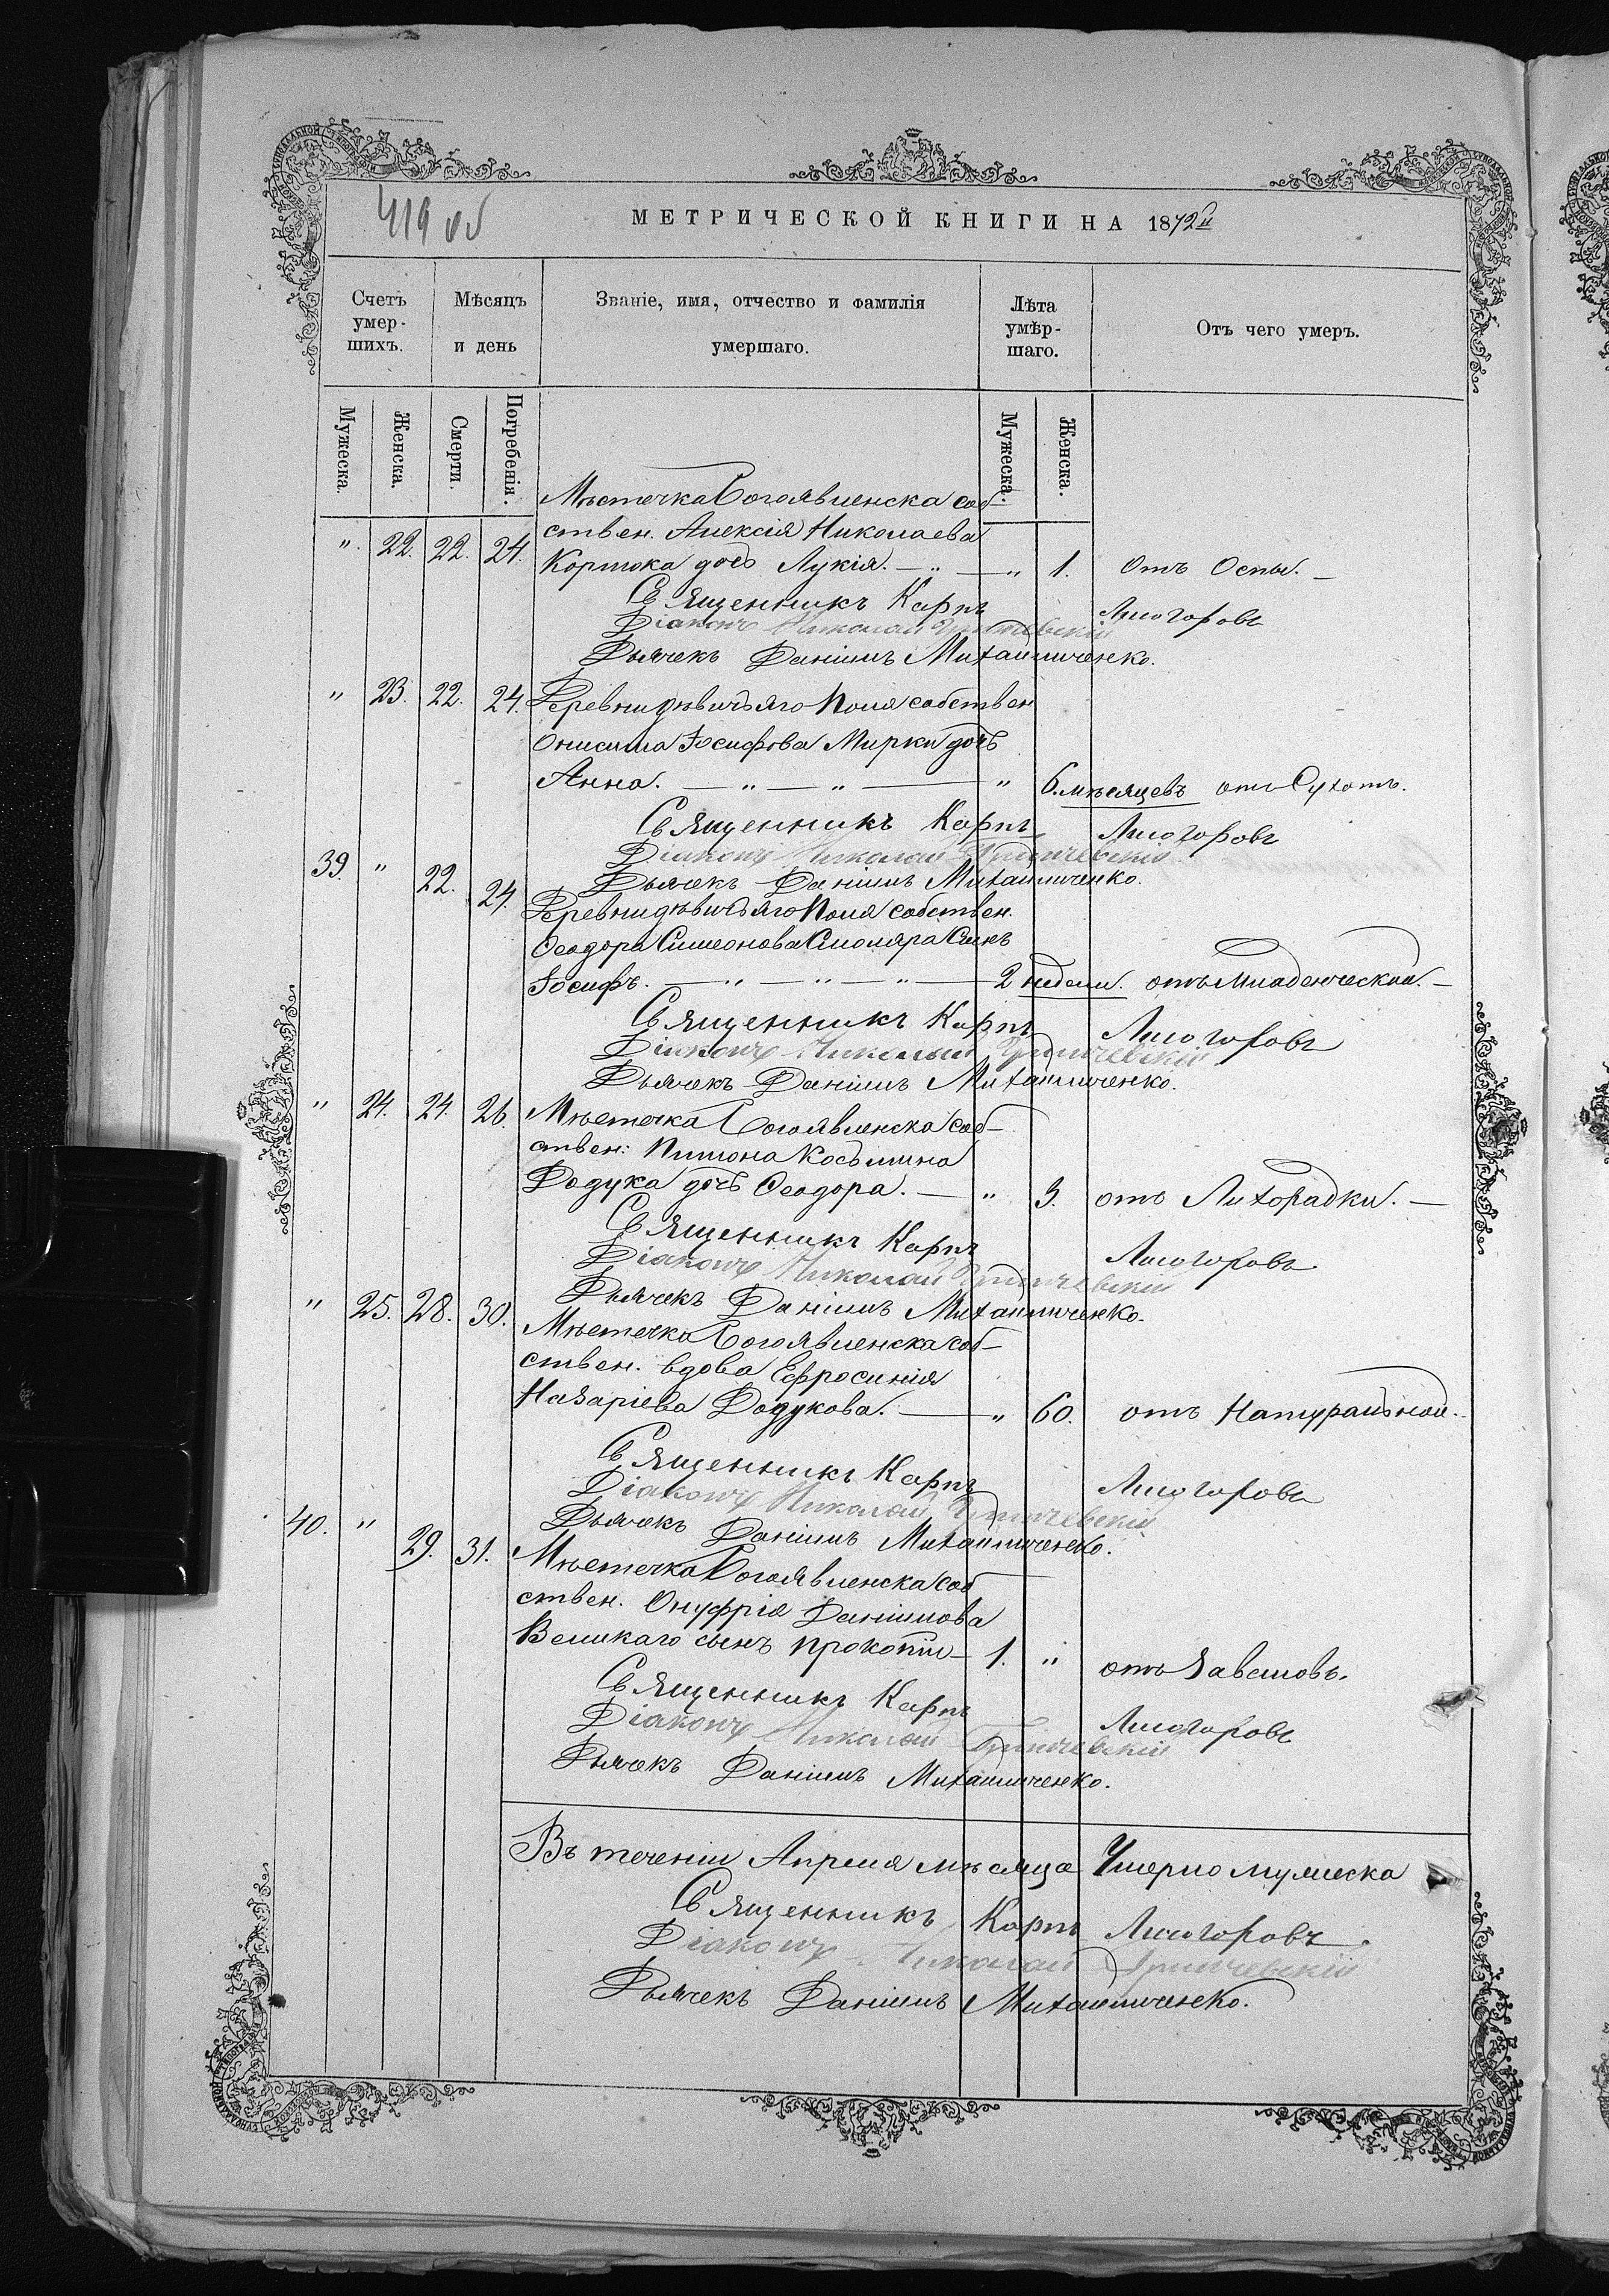 419 об
МЕТРИЧЕСКОЙ КНИГИ НА 1872й
Счетъ умер-шихъ.
Мѣсяцъ и день
Званіе, имя, отчество и фамилія умершаго.
Лѣта умѣр-шаго.
Отъ чего умеръ.
Мужеска. Женска. Смерти. Погребенія. Мужеска. Женска.
Мѣстечка Богоявленска соб-
ствен. Алексія Николаева
" 22. 22. 24. дочь Лукія. — " — " 1. Отъ Оспы. —
Священникъ Карпъ Лисогоровъ
Діаконъ Николай
Дьячекъ Даніилъ Михайличенко.
" 23. 22. 24. Деревни Дѣвичьяго Поля собствен
Онисима Іосифова Мирки дочь
Анна. — " — " — " 6. мѣсяцевъ отъ Сухотъ.
Священникъ Карпъ Лисогоровъ
Діаконъ Николай
Дьячекъ Даніилъ Михайличенко.
39. " 22. 24. Деревни Дѣвичьяго Поля собствен.
Ѳеодора Симеонова Смоляра Сынъ
Іосифъ. — " — " — " — 2 недели. отъ Младенческой. —
Священникъ Карпъ Лисогоровъ
Діаконъ Николай
Дьячекъ Даніилъ Михайличенко.
" 24. 24. 26. Мѣстечка Богоявленска соб-
ствен: Косьмина
Додука дочь Ѳеодора. — " 3. отъ Лихорадки. —
Священникъ Карпъ Лисогоровъ
Діаконъ Николай
Дьячекъ Даніилъ Михайличенко.
" 25. 28. 30. Мѣстечка Богоявленска соб-
ствен. вдова Ефросинія
Назаріева Додукова. — " 60. отъ Натуральной.
Священникъ Карпъ Лисогоровъ
Діаконъ Николай
Дьячекъ Даніилъ Михайличенко.
40. " 29. 31. Мѣстечка Богоявленска соб
ствен. Онуфрія Даніилова
Великаго сынъ Прокопій — 1. " отъ Заваловъ.
Священникъ Карпъ Лисогоровъ
Діаконъ Николай
Дьячекъ Даніилъ Михайличенко.
Въ теченіи Апреля мѣсяца Умерло мужеска
Священникъ Карпъ Лисогоровъ.
Діаконъ Николай
Дьячекъ Даніилъ Михайличенко.